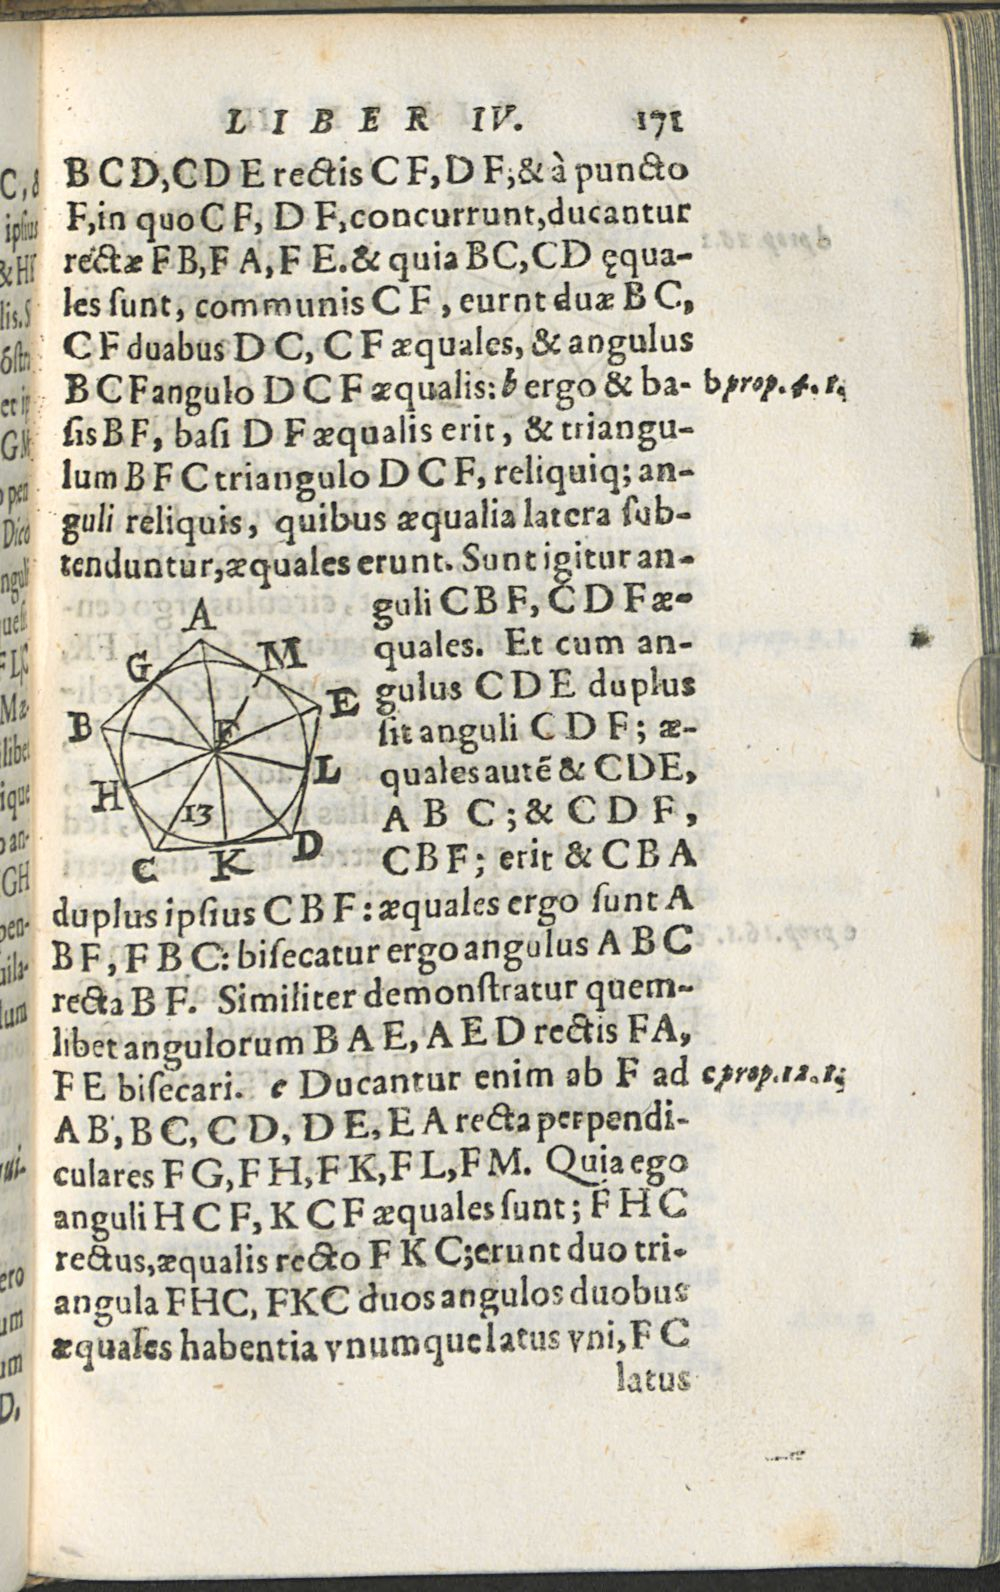 LIBER IV. 171
B C D, C D E rectis C F, D F; & à puncto
F, in quo C F, D F, concurrunt, ducantur
rectæ F B, F A, F E. & quia B C, C D ęqua-
les ſunt, communis C F, eurnt duæ B C,
C F duabus D C, C F æquales, & angulus
B C F angulo D C F æqualis: b ergo & ba- b prop. 4. 1.
ſis B F, baſi D F æqualis erit, & triangu-
lum B F C triangulo D C F, reliquiq; an-
guli reliquis, quibus æqualia latera ſub-
tenduntur, æquales erunt. Sunt igitur an-
guli C B F, C D F æ-
quales. Et cum an-
gulus C D E duplus
ſit anguli C D F; æ-
quales autē & C D E,
A B C; & C D F,
C B F; erit & C B A
A
G
M
B
E
F
L
H
13
C
K
D
duplus ipſius C B F: æquales ergo ſunt A
B F, F B C: biſecatur ergo angulus A B C
recta B F. Similiter demonſtratur quem-
libet angulorum B A E, A E D rectis F A,
F E biſecari. c Ducantur enim ab F ad c prop. 12. 1.
A B, B C, C D, D E, E A recta perpendi-
culares F G, F H, F K, F L, F M. Quia ego
anguli H C F, K C F æquales ſunt; F H C
rectus, æqualis recto F K C; erunt duo tri-
angula F H C, F K C duos angulos duobus
æquales habentia vnumque latus vni, F C
latus